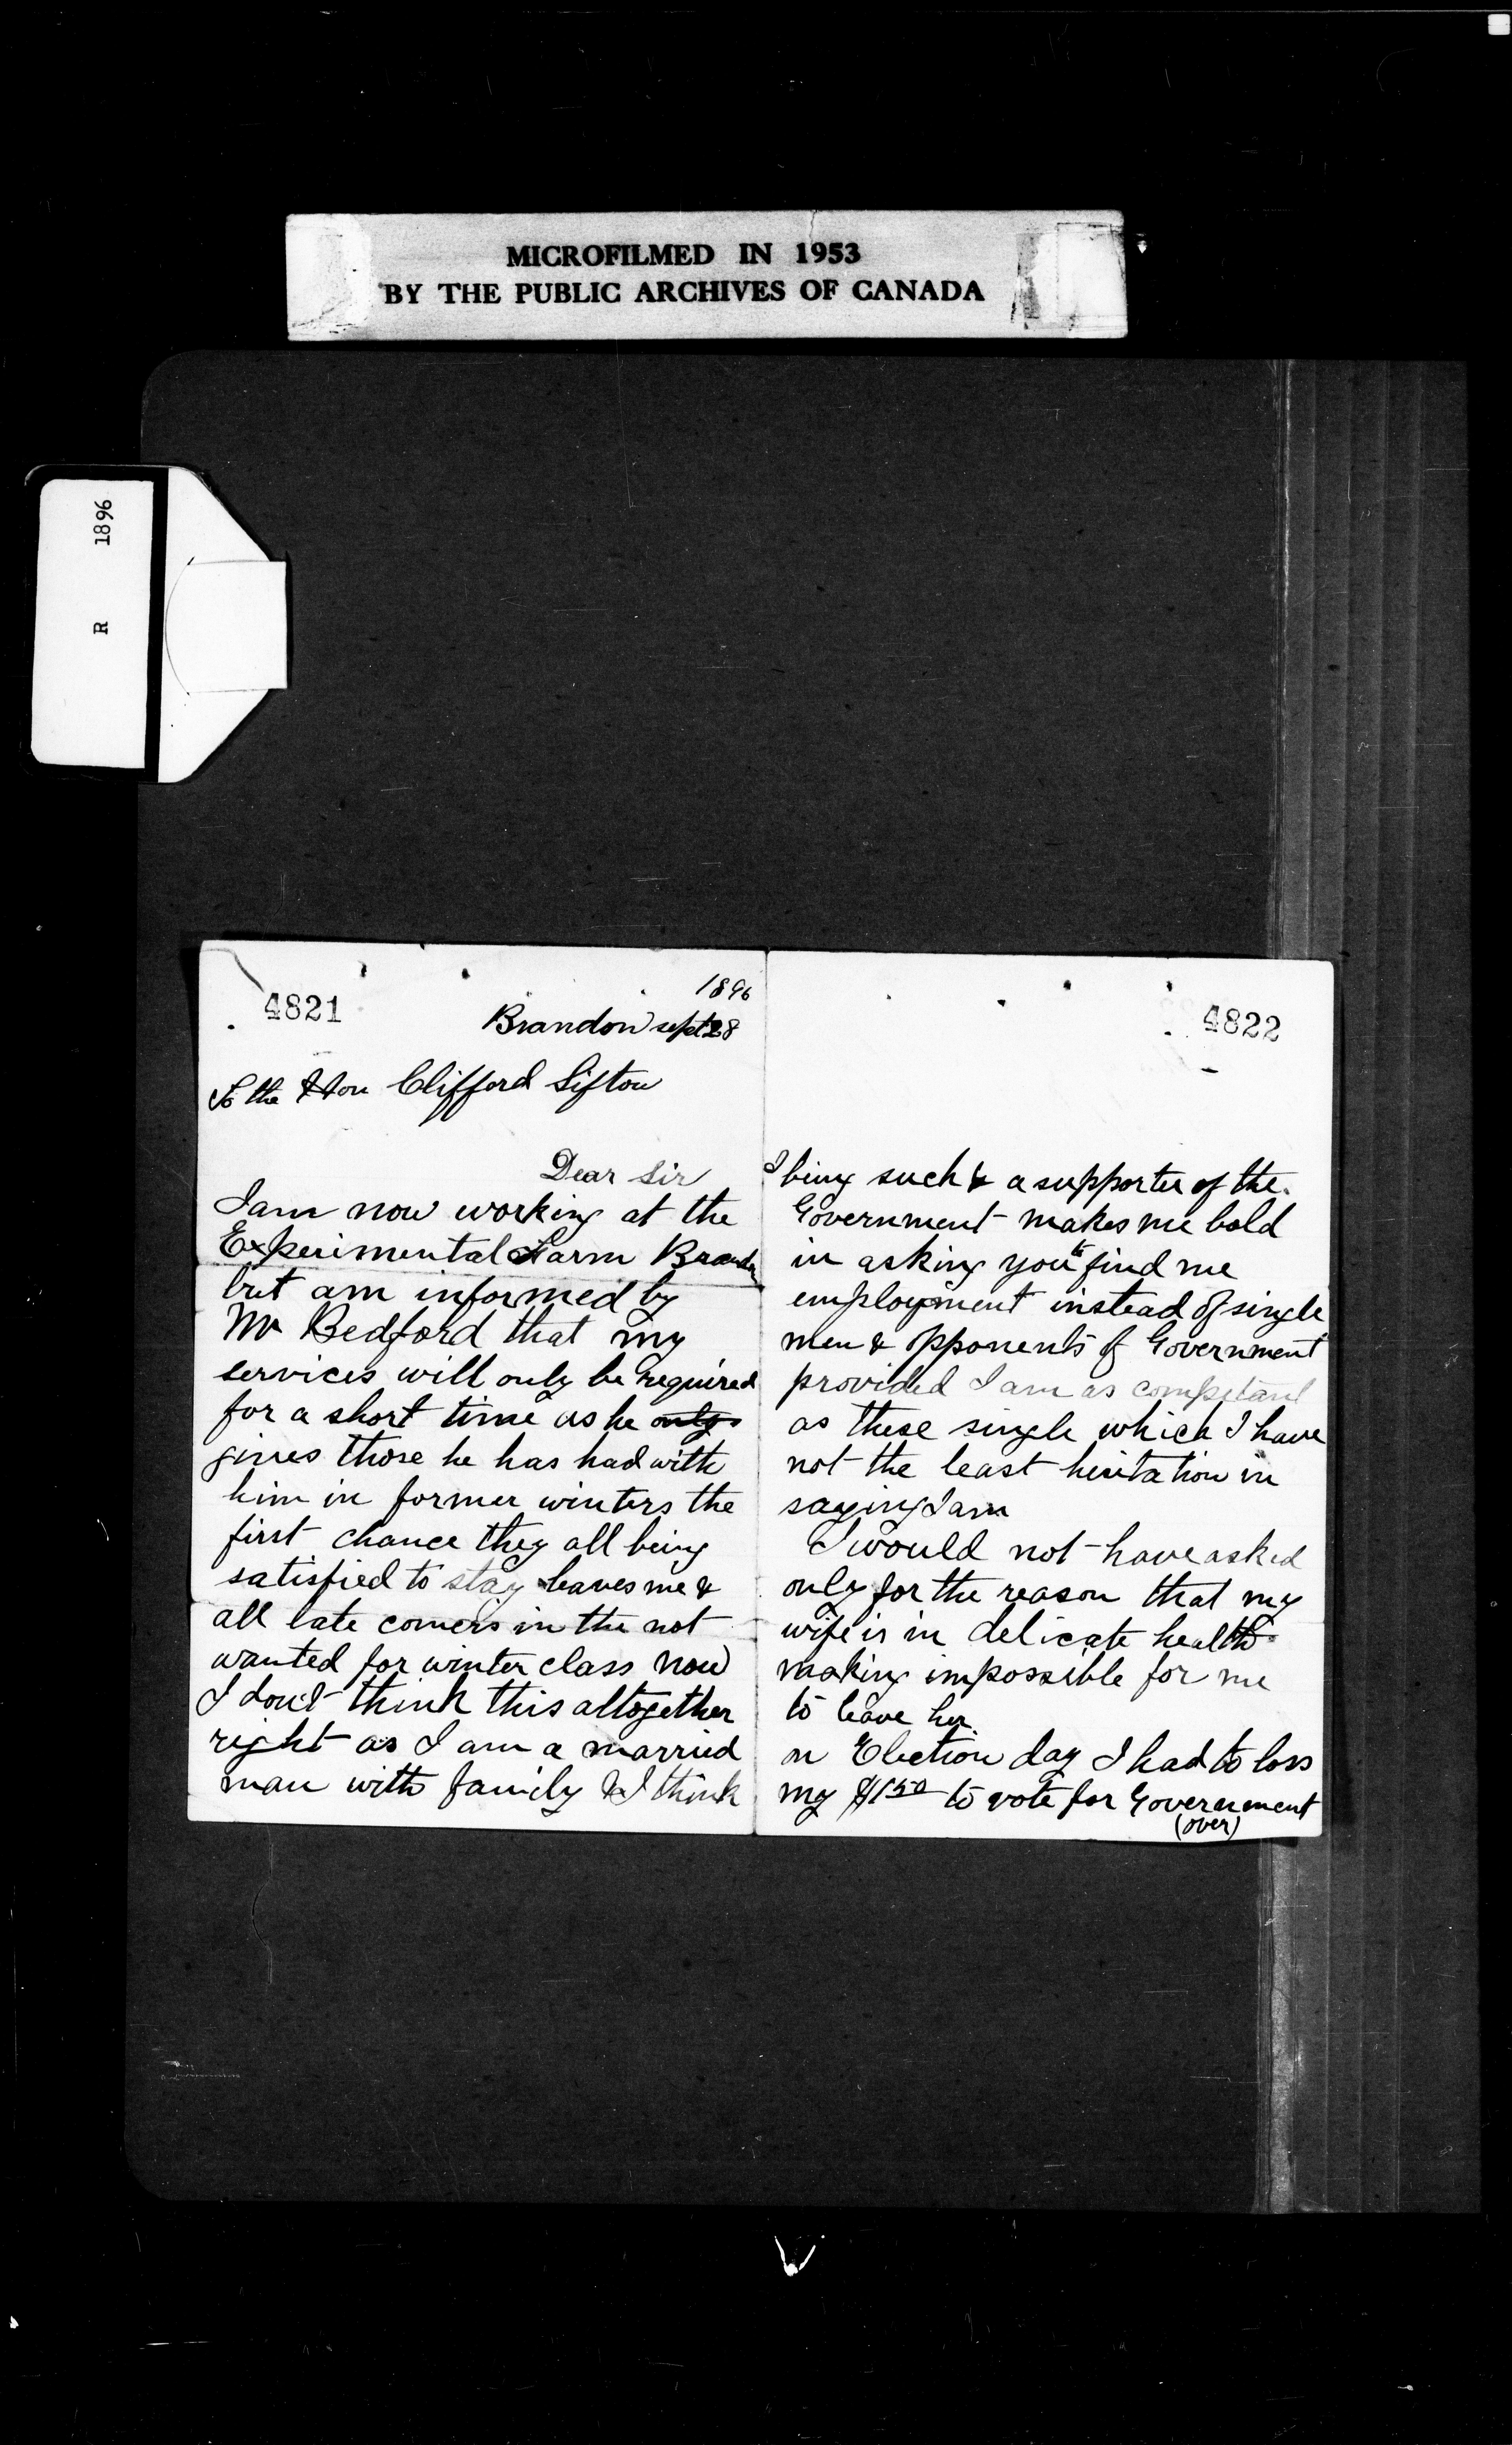 MICROFILMED IN 1953
BY THE PUBLIC ARCHIVES OF CANADA
R 1896
4821
1896
Brandon sept 28
To the Hon Clifford Sifton
Dear Sir
I am now working at the
Experimental Farm Brandon
but am informed by
Mr Bedford that my
services will only be required
for a short time as he only
gives those he has had with
him in former winters the
first chance they all being
satisfied to stay leaves me &
all late comers in the not
wanted for winter class now
I don't think this altogether
right as I am a married
man with family & I think
4822
I being such & a supporter of the
Government makes me bold
in asking you to find me
employment instead of single
men & opponents of Government
provided I am as competant
as these single which I have
not the least hesitation in
saying I am
I would not have asked
only for the reason that my
wife is in delicate health
making impossible for me
to leave her.
on Election day I had to loss
my $1.50 to vote for Government
(over)